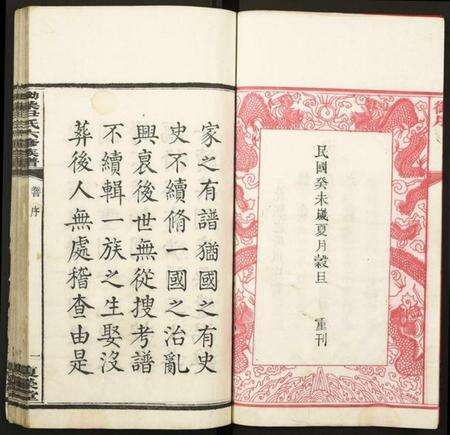 民國癸未歲夏月穀旦 重刊
家之有譜猶國之有史
史不續脩一國之治亂
興衰後世無從搜考譜
不續輯一族之生娶沒
葬後人無處稽查由是
氏六修族譜
卷 序
一